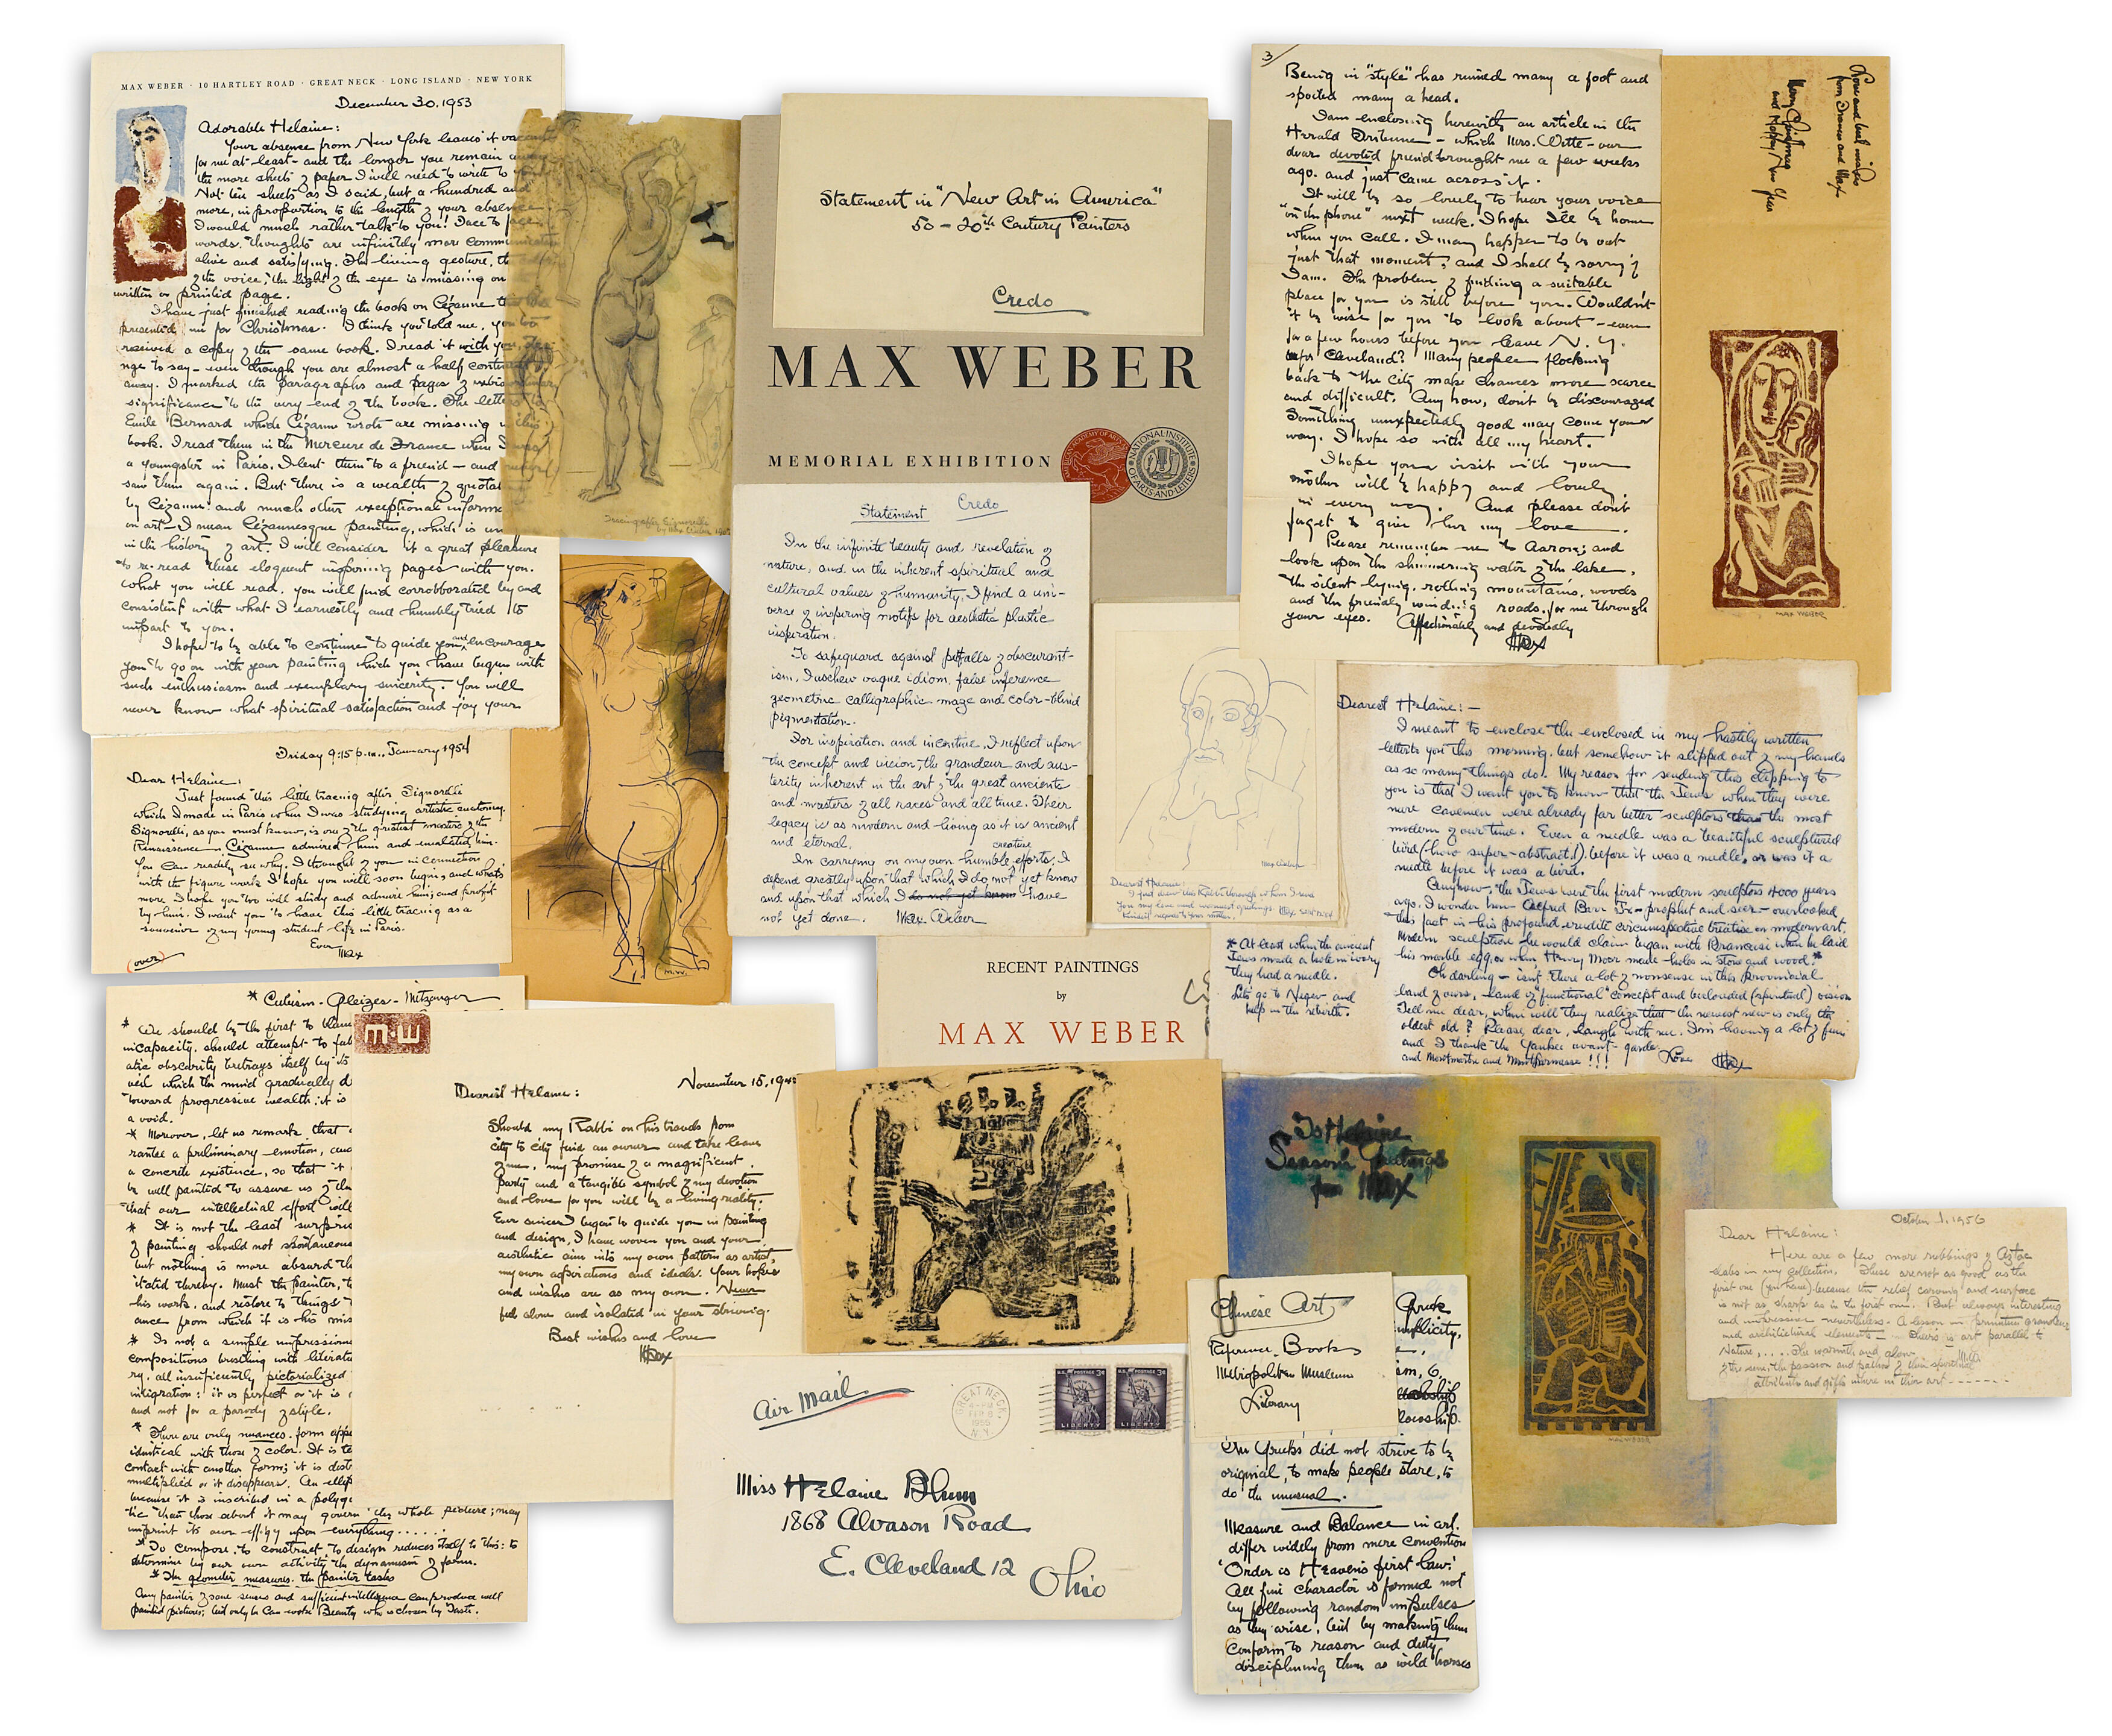 MAX WEBER · 10 HARTLEY ROAD · GREAT NECK · LONG ISLAND · NEW YORK
December 30, 1953
Adorable Helaine:
Your absence from New York leaves it vacant
for me at least - and the longer you remain away
the more sheets of paper I will need to write to
Not ten sheets as I said, but a hundred and
more, in proportion to the length of your absence.
I would much rather talk to you! Face to face
words, thoughts are infinitely more
alive and satisfying. The living gesture, the
of the voice, the light of the eye is missing on
written or printed page.
I have just finished reading the book on Cézanne
presented me for Christmas. I think you told me, you too
received a copy of the same book. I read it with you,
nge to say - even though you are almost a half continent
away. I marked the paragraphs and pages of
significance to the very end of the book. The letters to
Emile Bernard whide Cézanne wrote are missing in this
book. I read them in the Mercure de France when I was
a youngster in Paris. I lent them to a friend - and
saw them again. But there is a wealth of
by Cézanne and much other exceptional
on art - I mean Cézannesque painting, which is
in the history of art. I will consider it a great pleasure
to re-read these eloquent informing pages with you.
What you will read, you will find corrobborated by and
consistent with what I earnestly and humbly tried to
impart to you.
I hope to be able to continue to guide you and encourage
you to go on with your painting which you have begun with
such enthusiasm and exemplary sincerity. You will
never know what spiritual satisfaction and joy your
Friday 9:15 p.m., January 1954
Dear Helaine:
Just found this little tracing after Signorelli
which I made in Paris when I was studying artistic anatomy.
Signorelli, as you must know, is one of the greatest masters of the
Renaissance. Cézanne admired him and
You can readily see why. I thought of you in connection
with the figure work I hope you will soon begin, and what's
more I hope you too will study and admire him, and profit
by him. I want you to have this little tracing as a
souvenir of my young student life in Paris.
Ever
Max
(over)
* Cubism - Gleizes - Metzinger
* We should be the first to blame
incapacity, should attempt to
obscurity betrays itself by its
veil which the mind gradually
toward progressive wealth; it is
a void.
* Moreover, let us remark that
rantee a preliminary emotion,
a concrete existence, so that it
be well painted to assure us of the
that our intellectual effort will
* It is not the least
of painting should not spontaneous
but nothing is more absurd
itated thereby. Must the painter,
his work, and restore to things
ance from which it is his
* Is not a simple
compositions bristling with
ry, all insufficiently pictorialized
it is perfect or it is
and not for a parody of style.
* There are only nuances. form
identical with those of color. It is
contact with another form; it is
multiplied or it disappears. An
because it is inscribed in a
tic than those about it may govern the whole picture; may
imprint its own effigy upon everything.....
* To compose, to construct, to design reduces itself to this: to
determine by our own activity the dynamism of form.
* The geometer measures, the painter tastes
Any painter of some senses and sufficient intelligence can produce well
painted pictures; but only he can evoke Beauty who is chosen by Taste.
Tracing after Signorelli
by Max Weber
M.W.
Statement in "New Art in America"
50 - 20th Century Painters
Credo
MAX WEBER
MEMORIAL EXHIBITION
Statement Credo
In the infinite beauty and revelation of
nature, and in the inherent spiritual and
cultural values of humanity, I find a uni-
verse of inspiring motifs for aesthetic plastic
inspiration.
To safeguard against pitfalls of obscurant-
ism, I uschew vague idiom, false inference
geometric calligraphic maze and color-blind
pigmentation.
For inspiration and incentive, I reflect upon
the concept and vision, the grandeur and aus-
terity inherent in the art of the great ancients
and masters of all races and all time. Their
legacy is as modern and living as it is ancient
and eternal.
In carrying on my own humble creative efforts, I
depend greatly upon that which I do not yet know
and upon that which I do not yet know have
not yet done. Max Weber
3
Being in "style" has ruined many a foot and
spoiled many a head.
I am enclosing herewith an article in the
Herald Tribune - which Mrs. Witte - our
dear devoted friend brought me a few weeks
ago. and just came across it.
It will be so lovely to hear your voice
"on the phone" next week. I hope I'll be home
when you call. I may happen to be out
just that moment, and I shall be sorry if
I am. The problem of finding a suitable
place for you is still before you. Wouldn't
it be wise for you to look about - even
for a few hours before you leave N.Y.
for Cleveland? Many people flocking
back to the city make chances more scarce
and difficult. Any how, don't be discouraged
Something unexpectedly good may come your
way. I hope so with all my heart.
I hope your visit with your
mother will be happy and lovely
in every way. And please don't
forget to give her my love.
Please remember me to Aaron; and
look upon the shimmering water of the lake,
the silent lying, rolling mountains, woods
and the friendly winding roads, for me through
your eyes. Affectionately and devotedly
Max
Love and best wishes
from Frances and Max
Merry Christmas
and Happy New Year
MAX WEBER
Max Weber
Dearest Helaine:
I just drew this Rabbi through whom I send
you my love and warmest greetings. Max
Kindest regards to your mother!
Dearest Helaine: -
I meant to enclose the enclosed in my hastily written
letter to you this morning, but somehow it slipped out of my hands
as so many things do. My reason for sending this clipping to
you is that I want you to know that the Jews when they were
mere cavemen were already far better sculptors than the most
modern of our time. Even a needle was a beautiful sculptured
bird (how super-abstract!) before it was a needle, or was it a
needle before it was a bird.
Anyhow, the Jews were the first modern sculptors 4000 years
ago. I wonder how Alfred Barr Jr - prophet and seer - overlooked
this fact in his profound, erudite circumspective treatise on modern art.
Modern sculpture he would claim began with Brancusi when he laid
his marble egg, or when Henry Moor made holes in stone and wood.*
Oh darling - isn't there a lot of nonsense in this provincial
land of ours, - land of "functional" concept and beclouded (spiritual) vision
Tell me dear, when will they realize that the newest new is only the
oldest old? Please, dear, laugh with me. I'm having a lot of fun
and I thank the Yankee avant-garde
and Montmartre and Montparnasse!!! Love Max
* At least when the ancient
Jews made a hole in ivory
they had a needle.
Let's go to Negev and
help in the rebirth.
RECENT PAINTINGS
by
MAX WEBER
M·W
November 15, 194
Dearest Helaine:
Should my Rabbi on his travels from
city to city find an owner and take leave
of me, my promise of a magnificent
party and a tangible symbol of my devotion
and love for you will be a living reality.
Ever since I began to guide you in painting
and design, I have woven you and your
aesthetic aim into my own pattern as artist,
my own aspirations and ideals. Your hopes
and wishes are as my own. Never
feel alone and isolated in your striving.
Best wishes and love
Max
To Helaine
Season's Greetings
from Max
MAX WEBER
October 1, 1956
Dear Helaine:
Here are a few more rubbings of Aztec
slabs in my collection. These are not as good as the
first one (you have) because the relief carving and surface
is not as sharp as in the first one. But always interesting
and impressive nevertheless. A lesson in primitive grandeur
and architectural elements - Theirs is art parallel to
Nature, .... The warmth and glow
of the sun, the passion and pathos of their spiritual
attributes and gifts inhere in their art -------
Air Mail
GREAT NECK,
FEB 8
1955
N.Y.
U.S. POSTAGE 3¢
LIBERTY
U.S. POSTAGE 3¢
LIBERTY
Miss Helaine Blum
1868 Alvason Road
E. Cleveland 12
Ohio
Chinese Art
Reference Books
Metropolitan Museum
Library
Greek
The Greeks did not strive to be
original, to make people stare, to
do the unusual.
Measure and Balance in art.
differ widely from mere convention
'Order is Heaven's first law.'
All fine character is formed not
by following random impulses
as they arise, but by making them
conform to reason and duty,
disciplining them as wild horses